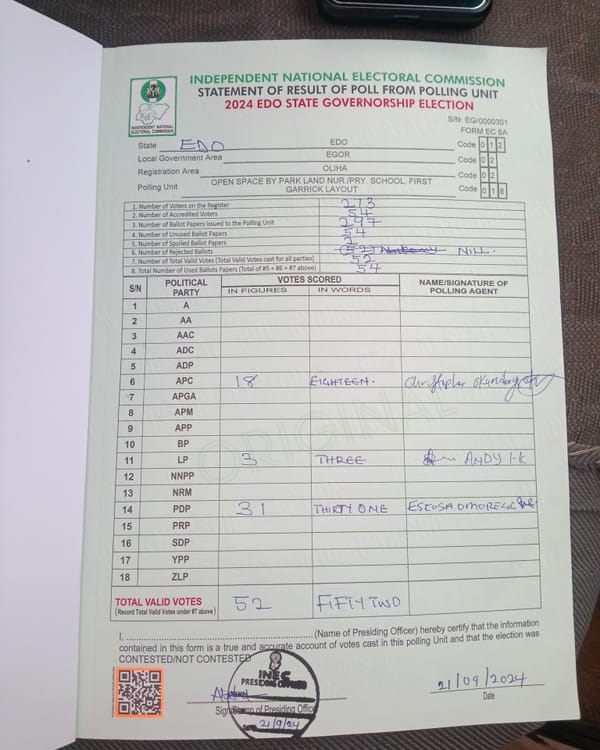 INDEPENDENT NATIONAL ELECTORAL COMMISSION
STATEMENT OF RESULT OF POLL FROM POLLING UNIT
2024 EDO STATE GOVERNORSHIP ELECTION
INEC
INDEPENDENT NATIONAL ELECTORAL COMMISSION
S/N: EG/0000301
FORM EC 8A
State EDO EDO Code 0 1 2
Local Government Area EGOR Code 0 2
Registration Area OLIHA Code 0 2
Polling Unit OPEN SPACE BY PARK LAND NUR./PRY. SCHOOL, FIRST GARRICK LAYOUT Code 0 1 8
1. Number of Voters on the Register 273
2. Number of Accredited Voters 54
3. Number of Ballot Papers Issued to the Polling Unit 297
4. Number of Unused Ballot Papers 54
5. Number of Spoiled Ballot Papers 2
6. Number of Rejected Ballots (52) NILL.
7. Number of Total Valid Votes (Total Valid Votes cast for all parties) 52
8. Total Number of Used Ballots Papers (Total of #5 + #6 + #7 above) 54
S/N POLITICAL PARTY VOTES SCORED NAME/SIGNATURE OF POLLING AGENT
IN FIGURES IN WORDS
1 A
2 AA
3 AAC
4 ADC
5 ADP
6 APC 18 EIGHTEEN.
7 APGA
8 APM
9 APP
10 BP
11 LP 3 THREE ANDY I.K
12 NNPP
13 NRM
14 PDP 31 THIRTY ONE
15 PRP
16 SDP
17 YPP
18 ZLP
ORIGINAL
TOTAL VALID VOTES 52 FIFTY TWO
(Record Total Valid Votes under #7 above)
I, (Name of Presiding Officer) hereby certify that the information
contained in this form is a true and accurate account of votes cast in this polling Unit and that the election was
CONTESTED/NOT CONTESTED
INEC
PRESIDING OFFICER
21/09/2024
Date
Sign/Stamp of Presiding Officer
DATE 21/9/24